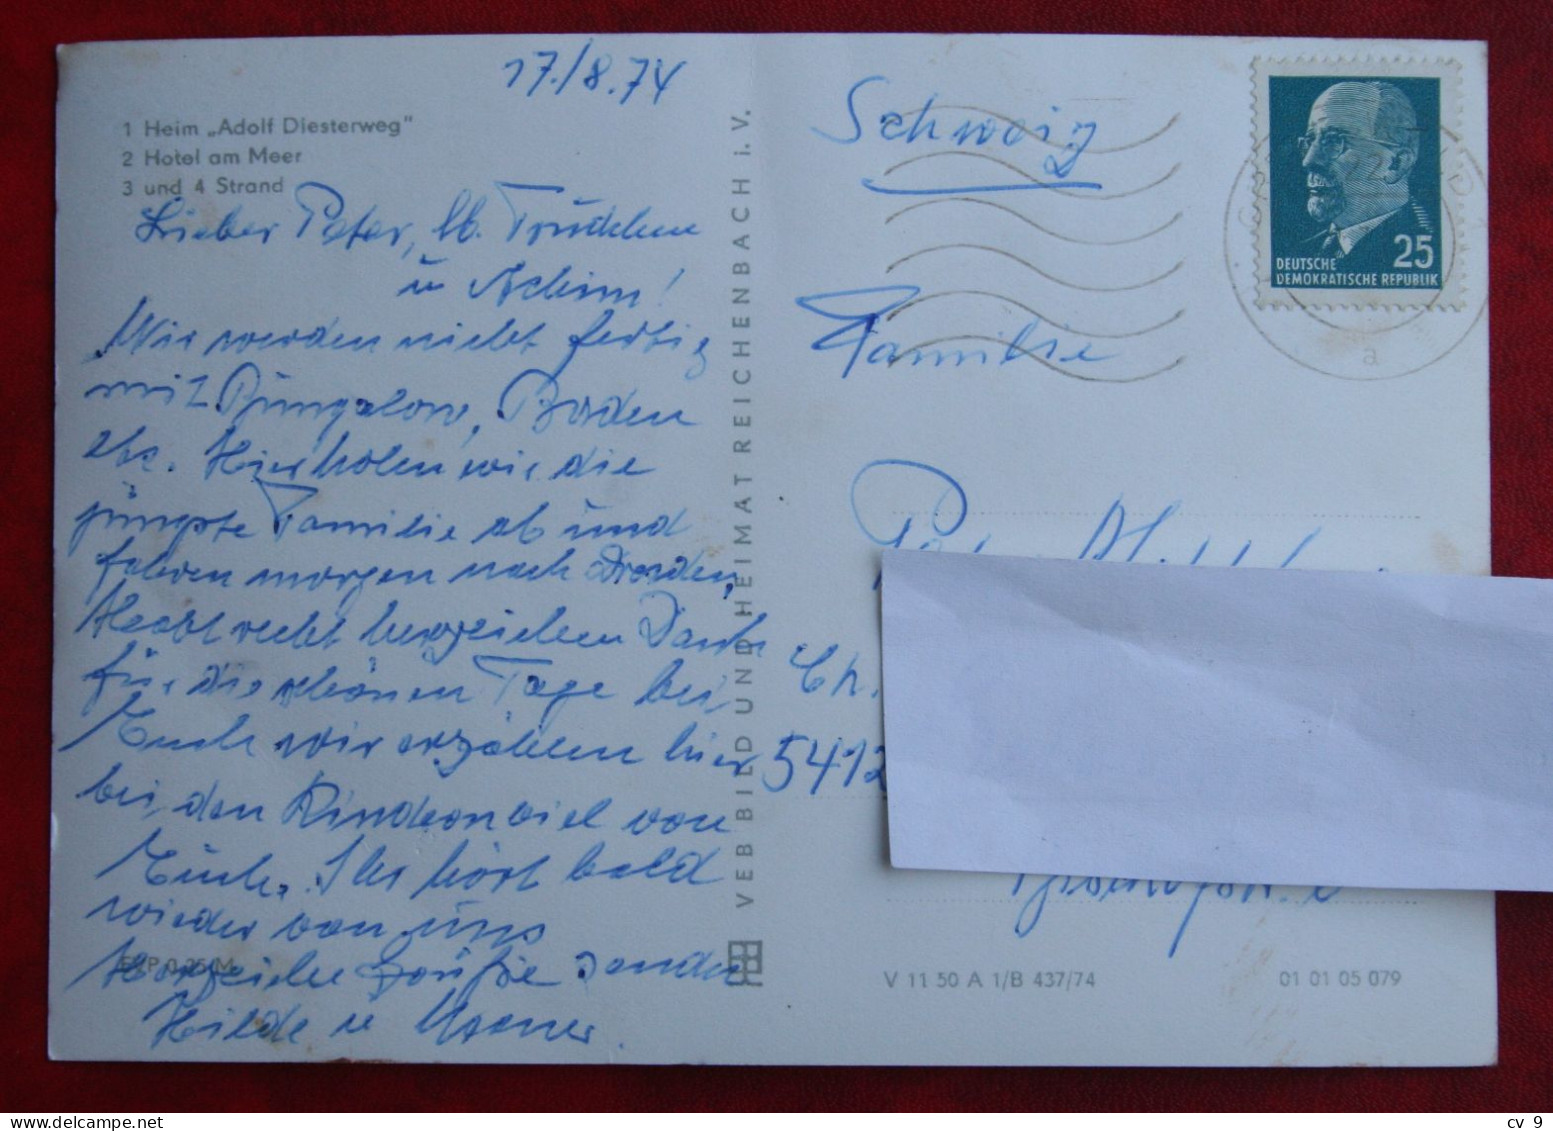 17./8.74
1 Heim „Adolf Diesterweg"
2 Hotel am Meer
3 und 4 Strand
Lieber Peter, lb. Trudchen
u Achim!
Wir werden nicht fertig
mit Bungalow, Boden
etc. Hier holen wir die
jüngste Familie ab und
fahren morgen nach Dresden.
Habt recht herzlichen Dank
für die schönen Tage bei
Euch wir erzählen hier
bei den Kindern viel von
Euch. Ihr hört bald
wieder von uns
Herzliche Grüße senden
Hilde u
EVP 0,25 M
VEB BILD UND HEIMAT REICHENBACH i. V.
Schweiz
Familie
Peter
Ch.
5412
V 11 50 A 1/B 437/74
01 01 05 079
25
DEUTSCHE
DEMOKRATISCHE REPUBLIK
a
cv 9